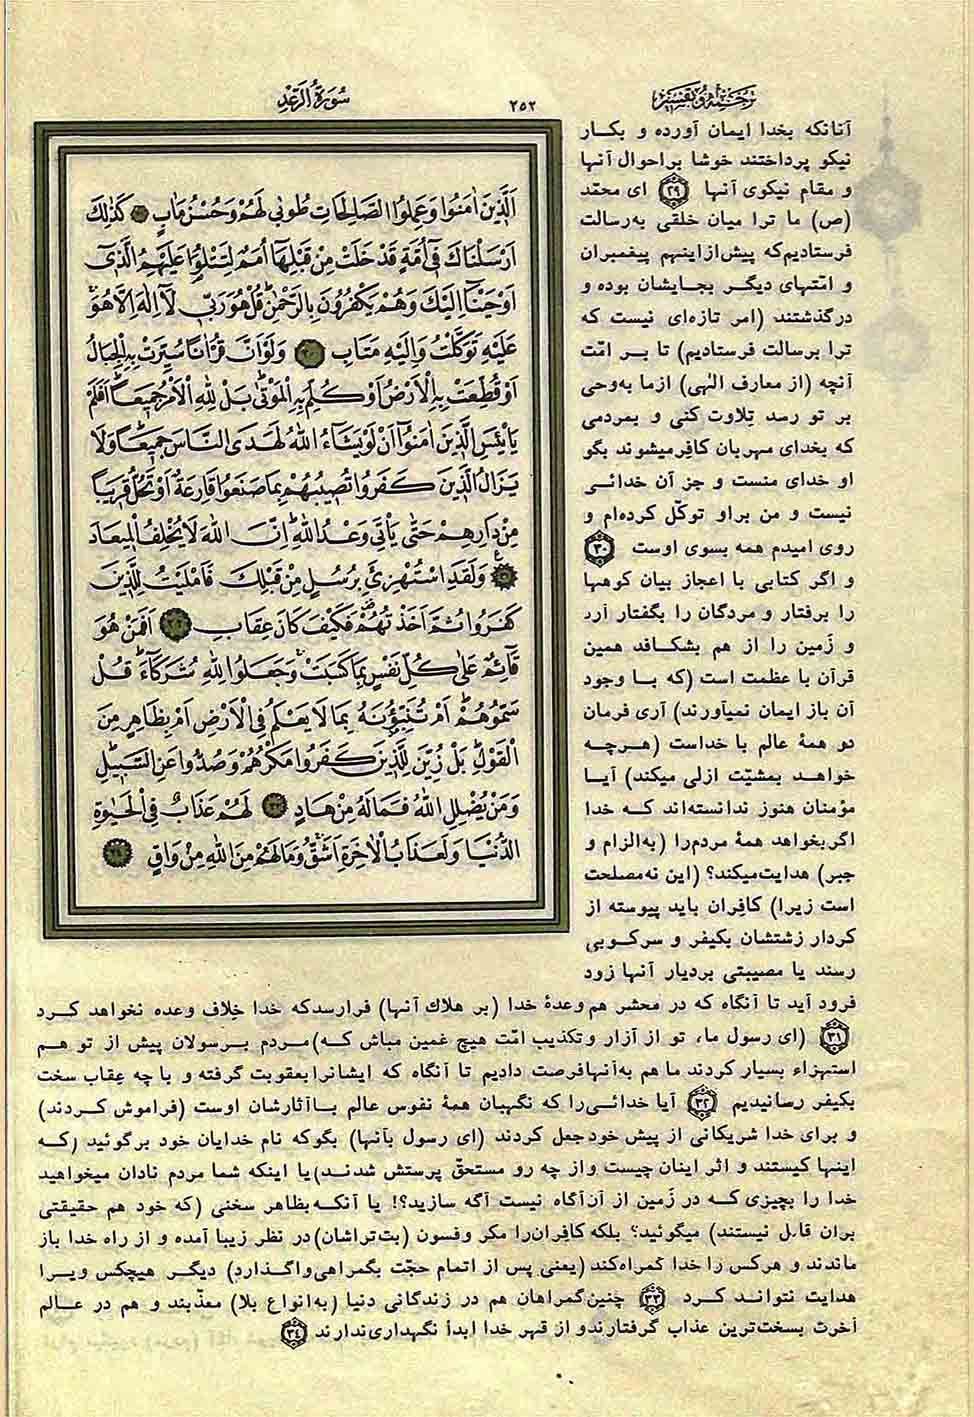 ترجمه و تفسیر
۲۵۲
سورة الرعد
آنانکه بخدا ایمان آورده و بکار
نیکو پرداختند خوشا براحوال آنها
و مقام نیکوی آنها ۲۹ ای محمّد
(ص) ما ترا میان خلقی به‌رسالت
فرستادیم‌که پیش‌ازاینهم پیغمبران
و امّتهای دیگر بجایشان بوده و
درگذشتند (امر تازه‌ای نیست که
ترا برسالت فرستادیم) تا بر امّت
آنچه (از معارف الهی) ازما به‌وحی
بر تو رسد تِلاوت کنی و بمردمی
که بخدای مهربان کافِر میشوند بگو
او خدای منست و جز آن خدائی
نیست و من براو توکّل کرده‌ام و
روی امیدم همه بسوی اوست ۳۰
و اگر کتابی با اعجاز بیان کوهها
را برفتار و مردگان را بگفتار آرد
و زَمین را از هم بشکافد همین
قرآن با عظمت است (که با وجود
آن باز ایمان نمیآورند) آری فرمان
دو همهٔ عالم با خداست (هرچه
خواهد بمشیّت ازلی میکند) آیا
مؤمنان هنوز ندانسته‌اند که خدا
اگربخواهد همهٔ مردم‌را (به‌الزام و
جبر) هدایت‌میکند؟ (این نه‌مصلحت
است زیرا) کافِران باید پیوسته از
کردار زشتشان بکیفر و سرکوبی
رسند یا مصیبتی بردیار آنها زود
فرود آید تا آنگاه که در محشر هم‌وعدهٔ خدا (بر هلاك آنها) فرارسدکه خدا خِلاف وعده نخواهد کرد
۳۱ (ای رسول ما، تو از آزار و تکذیب امّت هیچ غمین مباش که) مردم برسولان پیش از تو هم
استهزاء بسیار کردند ما هم به‌آنهافرصت دادیم تا آنگاه که ایشانرابعقوبت گرفته و باچه عِقاب سخت
بکیفر رسانیدیم ۳۲ آیا خدائی‌را که نگهبان همهٔ نفوس عالم باآثارشان اوست (فراموش کردند)
و برای خدا شریکانی از پیش خودجعل کردند (ای رسول بآنها) بگوکه نام خدایان خود برگوئید (که
اینها کیستند و اثر اینان چیست واز چه رو مستحقّ پرستش شدند) یا اینکه شما مردم نادان میخواهید
خدا را بچیزی که در زَمین از آن‌آگاه نیست آگه سازید؟! یا آنکه‌بظاهر سخنی (که خود هم حقیقتی
بران قایل نیستند) میگوئید؟ بلکه کافِران‌را مکر وفسون (بت‌تراشان) در نظر زیبا آمده و از راه خدا باز
ماندند و هرکس را خدا گمراه‌کند (یعنی پس از اتمام حجّت بگمراهی‌واگذارد) دیگر هیچکس ویرا
هدایت نتواند کرد ۳۳ چنین‌گمراهان هم در زندگانی دنیا (به‌انواع بلا) معذّبند و هم در عالم
آخرت بسخت‌ترین عذاب گرفتارندو از قهر خدا ابداً نگهداری‌ندارند ۳۴
اَلَّذينَ اٰمَنُوا وَعَمِلُوا الصّالِحاتِ طُوبى لَهُمْ وَحُسْنُ مَاٰبٍ كَذٰلِكَ
اَرْسَلْناكَ فى اُمَّةٍ قَدْ خَلَتْ مِنْ قَبْلِها اُمَمٌ لِتَتْلُوَا عَلَيْهِمُ الَّذى
اَوْحَيْنا اِلَيْكَ وَهُمْ يَكْفُرُونَ بِالرَّحْمٰنِ قُلْ هُوَ رَبّى لا اِلٰهَ اِلّا هُوَ
عَلَيْهِ تَوَكَّلْتُ وَاِلَيْهِ مَتابِ ۳۰ وَلَوْ اَنَّ قُرْاٰناً سُيِّرَتْ بِهِ الْجِبالُ
اَوْ قُطِّعَتْ بِهِ الْاَرْضُ اَوْ كُلِّمَ بِهِ الْمَوْتٰى بَلْ لِلّٰهِ الْاَمْرُ جَميعاً اَفَلَمْ
يَايْئَسِ الَّذينَ اٰمَنُوا اَنْ لَوْ يَشاءُ اللّٰهُ لَهَدَى النّاسَ جَميعاً وَلا
يَزالُ الَّذينَ كَفَرُوا تُصيبُهُمْ بِما صَنَعُوا قارِعَةٌ اَوْ تَحُلُّ قَريباً
مِنْ دارِهِمْ حَتّٰى يَاْتِىَ وَعْدُ اللّٰهِ اِنَّ اللّٰهَ لا يُخْلِفُ الْميعادَ
وَلَقَدِ اسْتُهْزِئَ بِرُسُلٍ مِنْ قَبْلِكَ فَاَمْلَيْتُ لِلَّذينَ
كَفَرُوا ثُمَّ اَخَذْتُهُمْ فَكَيْفَ كانَ عِقابِ ۳۲ اَفَمَنْ هُوَ
قائِمٌ عَلٰى كُلِّ نَفْسٍ بِما كَسَبَتْ وَجَعَلُوا لِلّٰهِ شُرَكاءَ قُلْ
سَمُّوهُمْ اَمْ تُنَبِّؤُنَهُ بِما لا يَعْلَمُ فِى الْاَرْضِ اَمْ بِظاهِرٍ مِنَ
الْقَوْلِ بَلْ زُيِّنَ لِلَّذينَ كَفَرُوا مَكْرُهُمْ وَصُدُّوا عَنِ السَّبيلِ
وَمَنْ يُضْلِلِ اللّٰهُ فَمالَهُ مِنْ هادٍ ۳۳ لَهُمْ عَذابٌ فِى الْحَيٰوةِ
الدُّنْيا وَلَعَذابُ الْاٰخِرَةِ اَشَقُّ وَمالَهُمْ مِنَ اللّٰهِ مِنْ واقٍ ۳۴